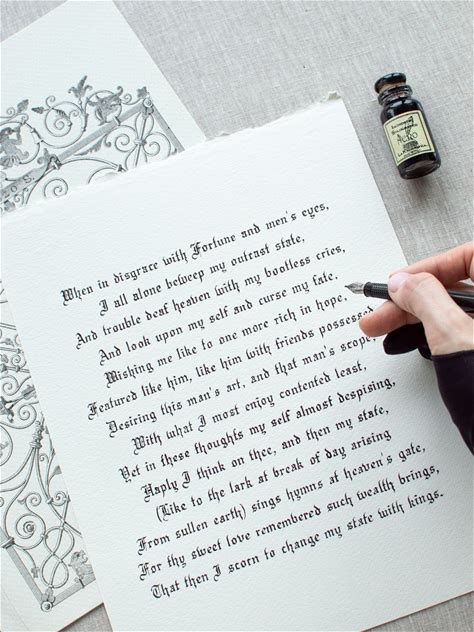 When in disgrace with Fortune and men's eyes,
I all alone beweep my outcast state,
And trouble deaf heaven with my bootless cries,
And look upon my self and curse my fate,
Wishing me like to one more rich in hope,
Featured like him, like him with friends possessed
Desiring this man's art, and that man's scope,
With what I most enjoy contented least,
Yet in these thoughts my self almost despising,
Haply I think on thee, and then my state,
(Like to the lark at break of day arising
From sullen earth) sings hymns at heaven's gate,
For thy sweet love remembered such wealth brings,
That then I scorn to change my state with kings.
NERO